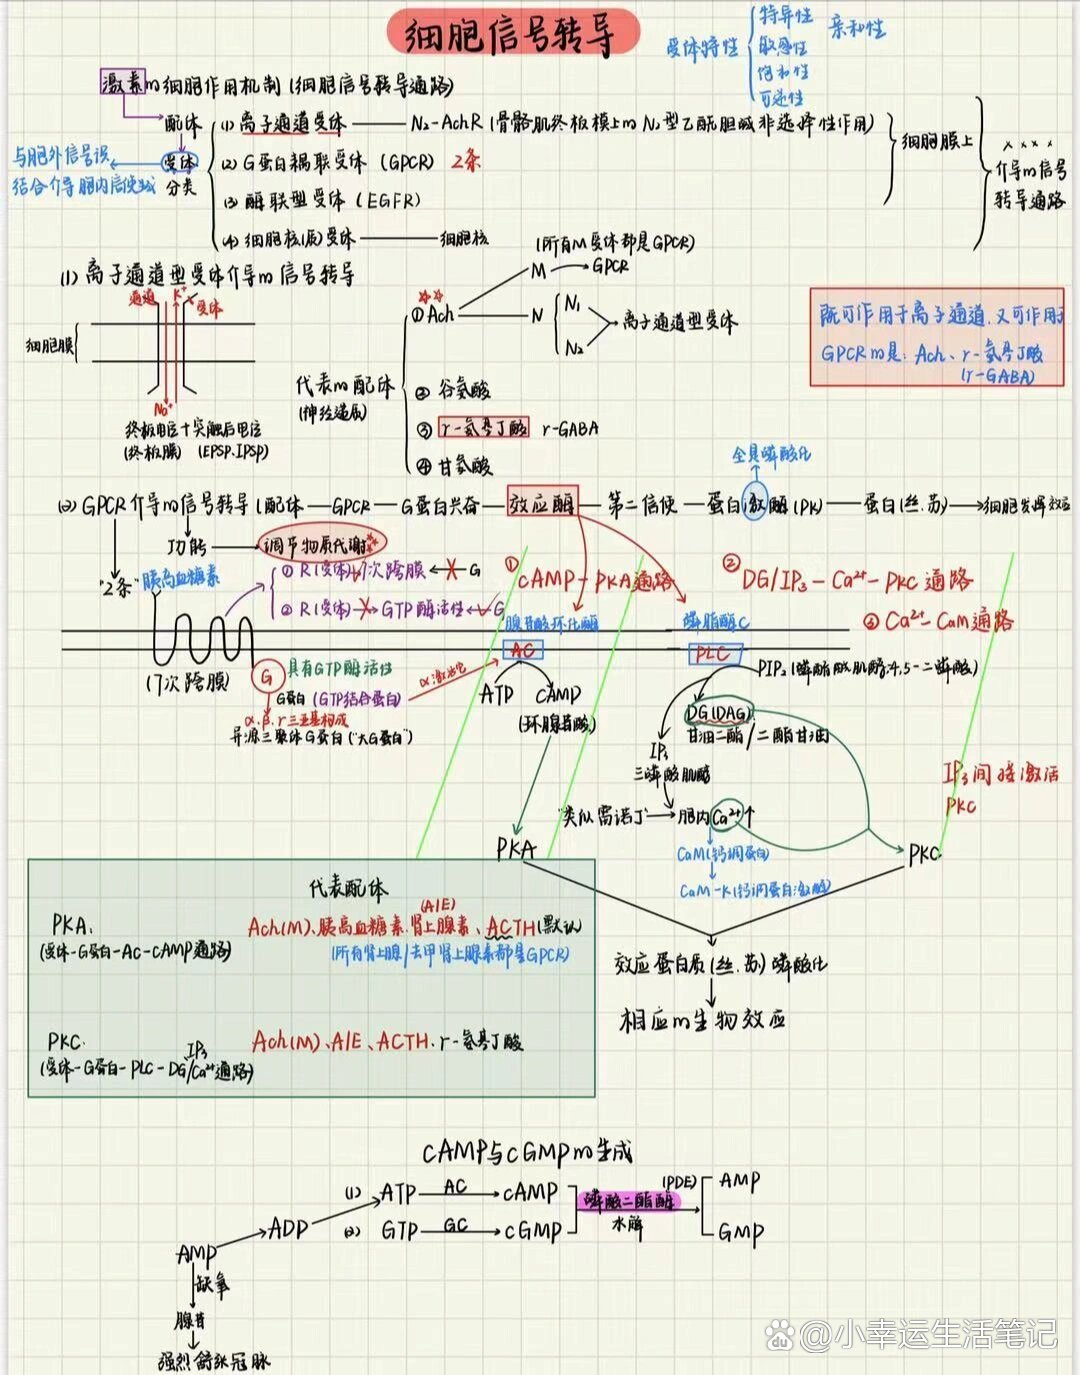 细胞信号转导
受体特性
特异性 亲和性
敏感性
饱和性
可逆性
激素m细胞作用机制(细胞信号转导通路)
配体
受体
分类
与胞外信号误
结合介导胞内信使域
(1) 离子通道受体 —— N₂-AchR (骨骼肌终板模上m N₂型乙酰胆碱非选择性作用)
(2) G蛋白耦联受体 (GPCR) 2条
(3) 酶联型受体 (EGFR)
(4) 细胞核(质)受体 —— 细胞核
细胞膜上
介导m信号
转导通路
(1) 离子通道型受体介导m信号转导
通道 K⁺ 受体
细胞膜
Na⁺
终板电位+突触后电位
(终板膜) (EPSP.IPSP)
代表m配体
(神经递质)
① Ach
M → GPCR
(所有M受体都是GPCR)
N
N₁
N₂
离子通道型受体
② 谷氨酸
③ r-氨基丁酸 r-GABA
④ 甘氨酸
既可作用于离子通道.又可作用于
GPCR m是: Ach、r-氨基丁酸
(r-GABA)
全是磷酸化
(2) GPCR介导m信号转导(配体—GPCR—G蛋白兴奋—效应酶—第二信使—蛋白激酶(PK)—蛋白(丝.苏)→细胞发挥效应
功能 → 调节物质代谢
"2条" 胰高血糖素
① R(受体) 7次跨膜 ← G
② R(受体) → GTP酶活性 ← G
(7次跨膜)
G 具有GTP酶活性
G蛋白(GTP结合蛋白)
α.β.r三亚基构成
异源三聚体G蛋白("大G蛋白")
α激活它
① cAMP-PKA通路
② DG/IP₃-Ca²⁺-PKC通路
③ Ca²⁺-CaM通路
腺苷酸环化酶
AC
ATP cAMP
(环腺苷酸)
PKA
磷脂酶C
PLC
PIP₂(磷酯酰肌醇.4.5-二磷酸)
DG(DAG)
甘油二酯/二酯甘油
IP₃
三磷酸肌醇
"类似雷诺丁" → 胞内Ca²⁺↑
CaM(钙调蛋白)
CaM-K(钙调蛋白激酶)
PKC
IP₃间接激活
PKC
效应蛋白质(丝.苏)磷酸化
相应m生物效应
代表配体
PKA.
(受体-G蛋白-AC-cAMP通路)
(A/E)
Ach(M)、胰高血糖素.肾上腺素、ACTH(默认)
(所有肾上腺/去甲肾上腺素都是GPCR)
PKC.
IP₃
(受体-G蛋白-PLC-DG/Ca²⁺通路)
Ach(M)、A/E、ACTH.r-氨基丁酸
cAMP与cGMP m生成
(1) ATP AC cAMP
(2) GTP GC cGMP
磷酸二酯酶 (PDE)
水解
AMP
GMP
AMP → ADP
缺氧
腺苷
强烈舒张冠脉
@小幸运生活笔记